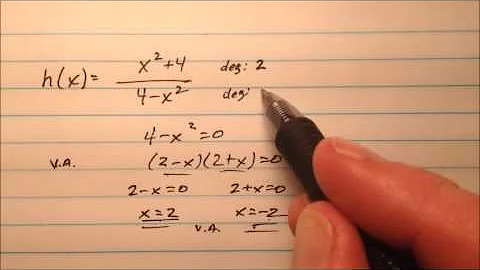 h(x) = x²+4 / 4-x² deg: 2
deg:
4-x²=0
V.A. (2-x)(2+x)=0
2-x=0 2+x=0
x=2 V.A. x=-2